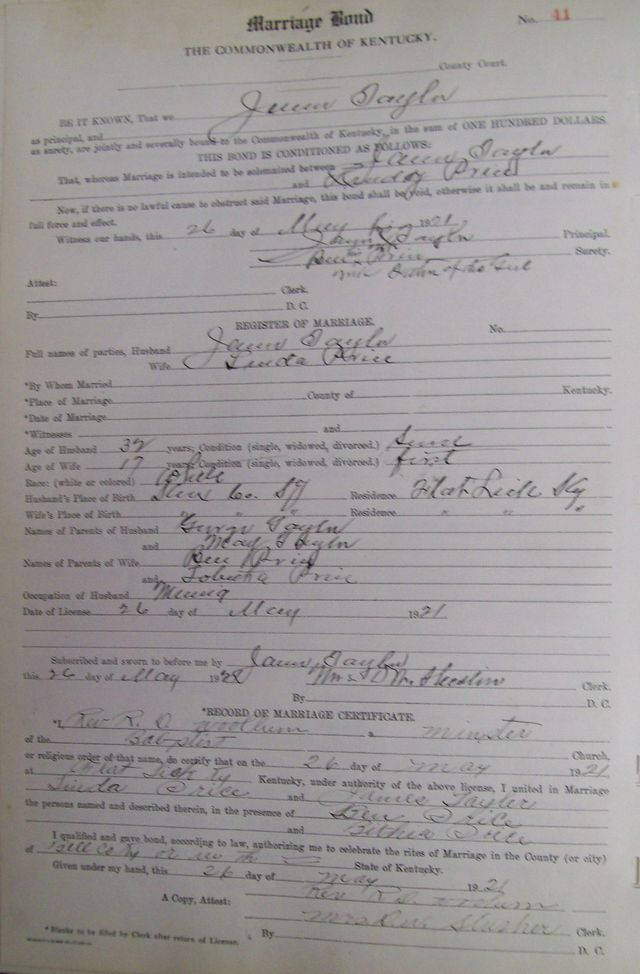 Marriage Bond No. 41
THE COMMONWEALTH OF KENTUCKY.
County Court.
BE IT KNOWN, That we James Taylor
as principal, and
as surety, are jointly and severally bound to the Commonwealth of Kentucky, in the sum of ONE HUNDRED DOLLARS.
THIS BOND IS CONDITIONED AS FOLLOWS:
That, whereas Marriage is intended to be solemnized between James Taylor
and Price
Now, if there is no lawful cause to obstruct said Marriage, this bond shall be void, otherwise it shall and remain in
full force and effect.
Witness our hands, this 26 day of May 1921
James Taylor Principal.
Ben Price Surety.
of the Girl
Attest:
Clerk.
By D. C.
REGISTER OF MARRIAGE.
No.
Full names of parties, Husband James Taylor
Wife Linda Price
*By Whom Married
*Place of Marriage County of Kentucky.
*Date of Marriage
*Witnesses and
Age of Husband years; Condition (single, widowed, divorced.)
Age of Wife 17 years; Condition (single, widowed, divorced.) first
Race: (white or colored) White
Husband's Place of Birth Co. Residence Flat Lick Ky
Wife's Place of Birth " " Residence " " "
Names of Parents of Husband George Taylor
and May Taylor
Names of Parents of Wife Ben Price
and Price
Occupation of Husband Mining
Date of License 26 day of May 1921
Subscribed and sworn to before me by James Taylor
this 26 day of May Clerk.
By D. C.
*RECORD OF MARRIAGE CERTIFICATE.
*I, Rev R. D. a minster
of the Baptist Church,
or religious order of that name, do certify that on the 26 day of May 1921
at Flat Lick Ky Kentucky, under authority of the above license, I united in Marriage
Linda Price and James Tayler
the persons named and described therein, in the presence of Ben Price
and Price
I qualified and gave bond, according to law, authorizing me to celebrate the rites of Marriage in the County (or city)
of Bell State of Kentucky.
Given under my hand, this 26 day of May 1921
Rev R. D.
A Copy, Attest: Mrs Slusher Clerk.
* Blanks to be filled by Clerk after return of License. By D. C.